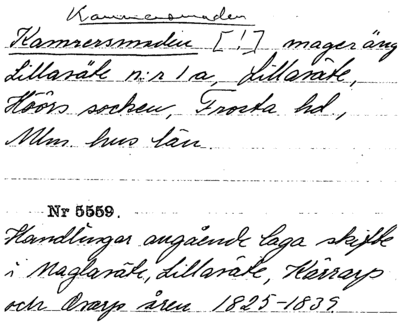 Kamnersmaden
Kamrersmaden [!] mager äng
Lillasäte n:r 1 a, Lillasäte,
Höörs socken, Frosta hd,
Mlm. hus län
Nr 5559.
Handlingar angående laga skifte
i Maglasäte, Lillasäte, Kärrarp
och Ovarp åren 1825-1839.